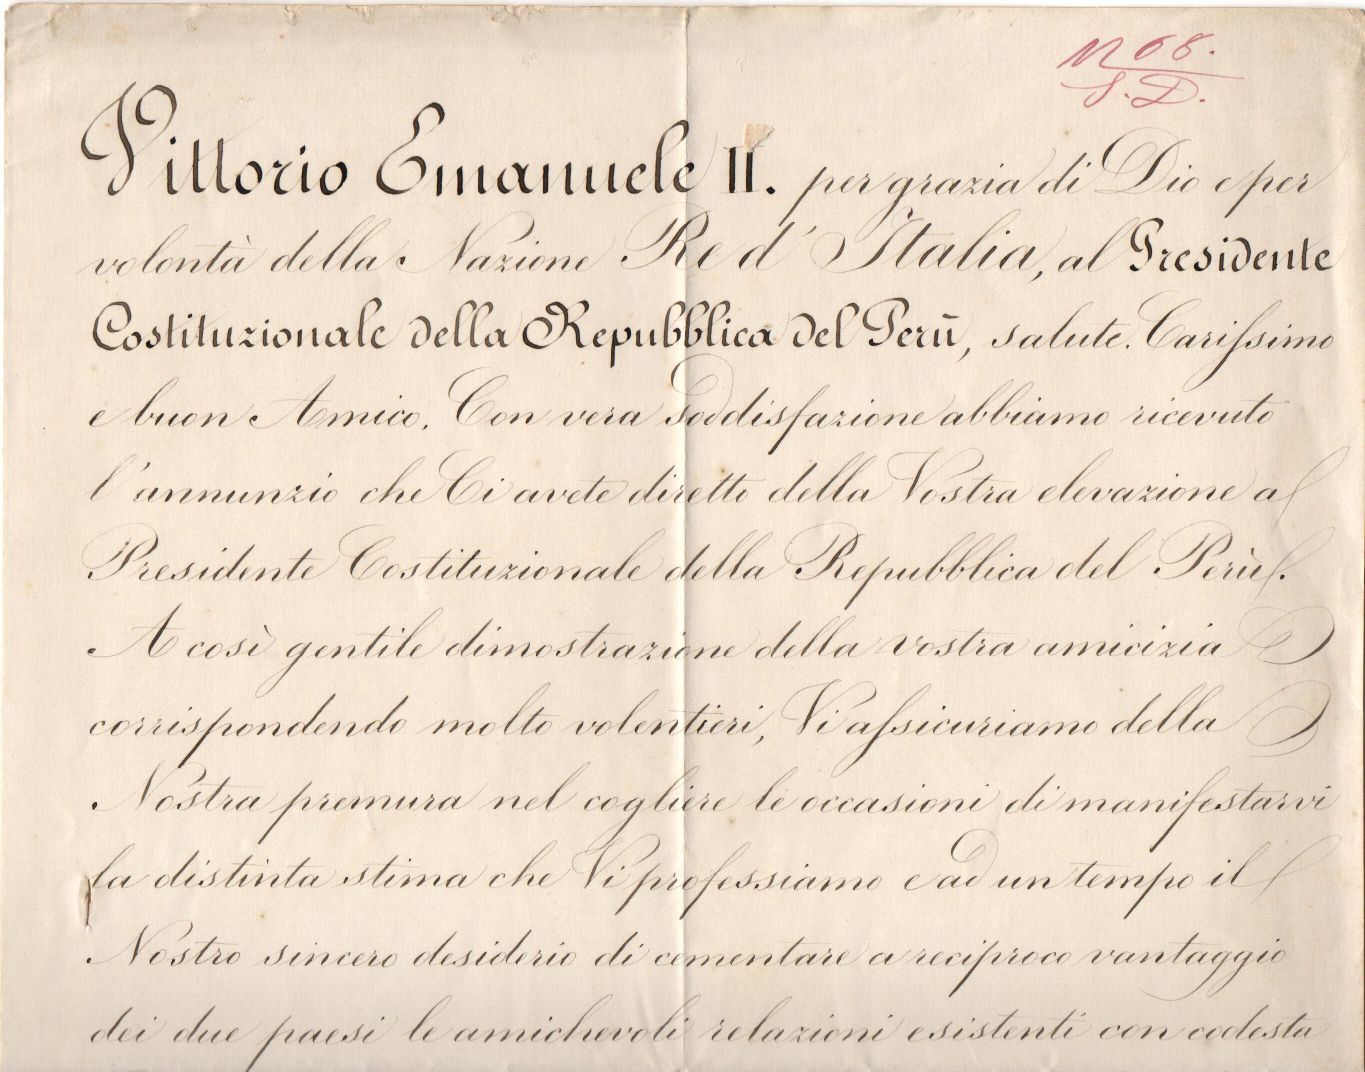 N 68.
S. D.
Vittorio Emanuele II. per grazia di Dio e per
volontà della Nazione Re d'Italia, al Presidente
Costituzionale della Repubblica del Perù, salute. Carissimo
e buon Amico. Con vera soddisfazione abbiamo ricevuto
l'annunzio che Ci avete diretto della Vostra elevazione a
Presidente Costituzionale della Repubblica del Perù.
A così gentile dimostrazione della vostra amicizia
corrispondendo molto volentieri, Vi assicuriamo della
Nostra premura nel cogliere le occasioni di manifestarvi
la distinta stima che Vi professiamo e ad un tempo il
Nostro sincero desiderio di cementare a reciproco vantaggio
dei due paesi le amichevoli relazioni esistenti con codesta